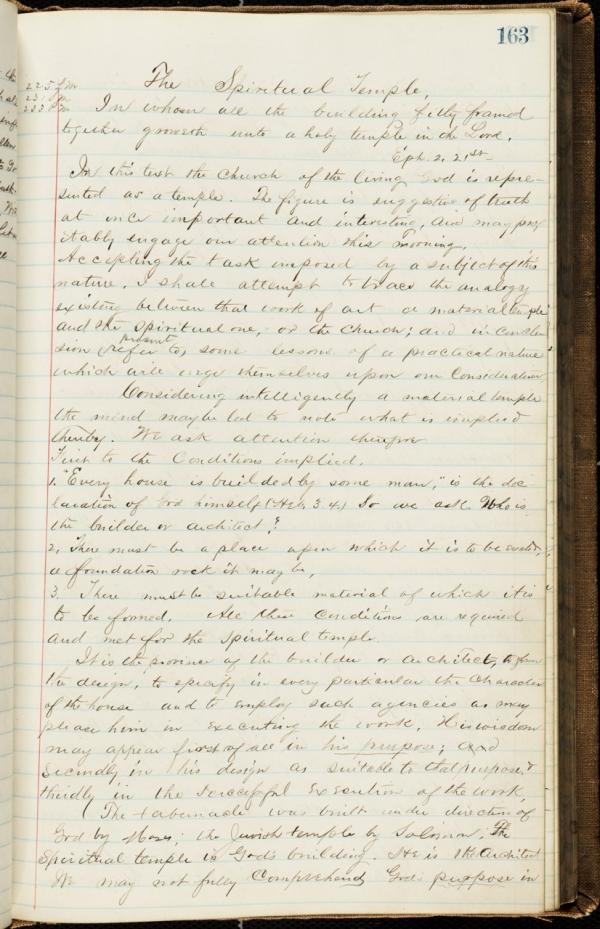 163
The Spiritual Temple.
In whom all the building fitly framed
together groweth unto a holy temple in the Lord.
Eph. 2. 21st
In this text the Church of the living God is repre-
sented as a temple. The figure is suggestive of truth
at once important and interesting, and may prof-
itably engage our attention this morning.
Accepting the task imposed by a subject of this
nature, I shall attempt to trace the analogy
existing between that work of art a material temple
and the spiritual one, or the church; and in conclu-
sion present some lessons of a practical nature
which will urge themselves upon our Consideration
Considering intelligently a material temple
the mind may be led to note what is implied
thereby. We ask attention therefore
First to the Conditions implied.
1. "Every house is builded by some man," is the dec-
laration of God himself (Heb. 3. 4.) So we ask Who is
the builder or architect?
2. There must be a place upon which it is to be erected,
a foundation rock it may be,
3. There must be suitable material of which it is
to be formed. All these Conditions are required
and met for the Spiritual temple.
It is the province of the builder or architect, to form
the design, to specify in every particular the Character
of the house and to employ such agencies as may
please him in executing the work. His wisdom
may appear first of all in his purpose; and
secondly in his design as suitable to that purpose &
thirdly in the successful execution of the work.
The tabernacle was built under direction of
God by Moses; the Jewish temple by Solomon; The
Spiritual temple is God's building. He is the Architect
We may not fully Comprehend God's purpose in